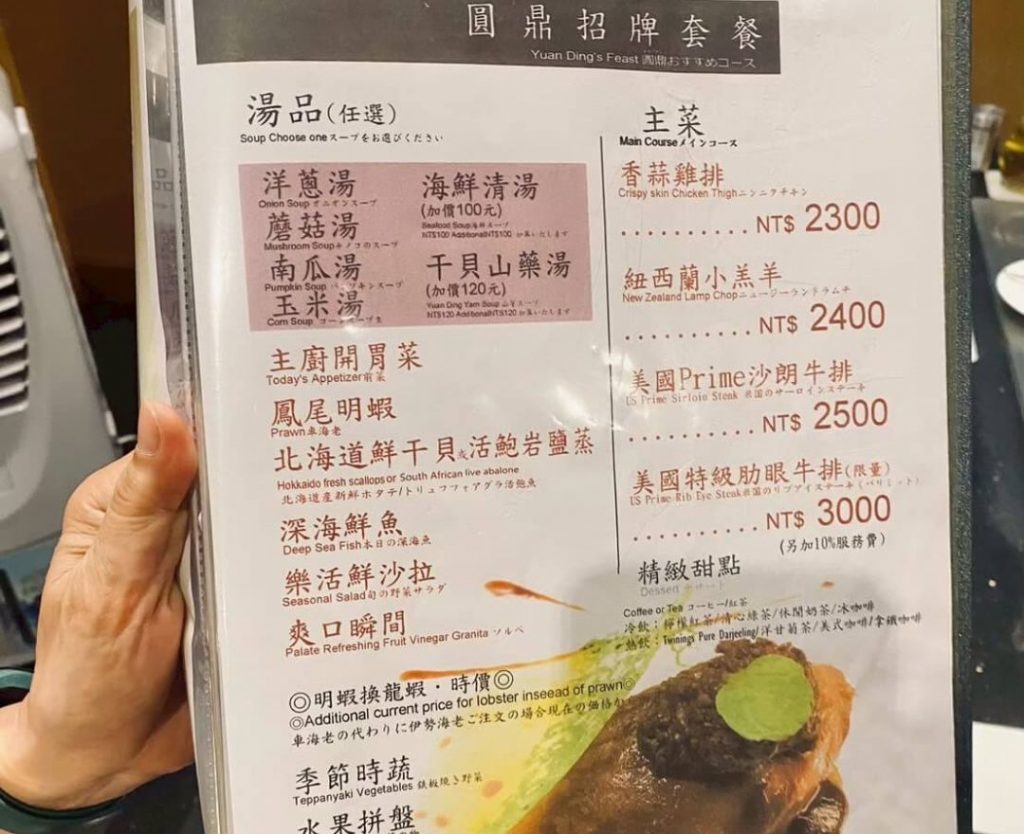 圓鼎招牌套餐
Yuan Ding's Feast 圓鼎おすすめコース
湯品(任選)
Soup Choose oneスープをお選びください
洋蔥湯
Onion Soup オニオンスープ
蘑菇湯
Mushroom Soupキノコのスープ
南瓜湯
Pumpkin Soup パンプキンスープ
玉米湯
Corn Soup コーンスープ
海鮮清湯
(加價100元)
Seafood Soup海鮮スープ
NT$100 AdditionalNT$100 加算いたします
干貝山藥湯
(加價120元)
Yuan Ding Yam Soup 山芋スープ
NT$120 AdditionalNT$120 加算いたします
主廚開胃菜
Today's Appetizer前菜
鳳尾明蝦
Prawn車海老
北海道鮮干貝或活鮑岩鹽蒸
Hokkaido fresh scallops or South African live abalone
北海道産新鮮ホタテ/トリュフフォアグラ活鮑魚
深海鮮魚
Deep Sea Fish本日の深海魚
樂活鮮沙拉
Seasonal Salad旬の野菜サラダ
爽口瞬間
Palate Refreshing Fruit Vinegar Granita ソルベ
◎明蝦換龍蝦・時價◎
◎Additional current price for lobster inseead of prawn◎
車海老の代わりに伊勢海老ご注文の場合現在の価格か
季節時蔬
Teppanyaki Vegetables 鉄板焼き野菜
水果拼盤
主菜
Main Courseメインコース
香蒜雞排
Crispy skin Chicken Thighニンニクチキン
.......... NT$ 2300
紐西蘭小羔羊
New Zealand Lamp Chopニュージーランドラムチ
.......... NT$ 2400
美國Prime沙朗牛排
US Prime Sirloin Steak 米国のサーロインステーキ
.......... NT$ 2500
美國特級肋眼牛排(限量)
US Prime Rib Eye Steak米国のリブアイステーキ(パリミット)
.......... NT$ 3000
(另加10%服務費)
精緻甜點
Dessert デザート
Coffee or Tea コーヒー/紅茶
冷飲：檸檬紅茶/清心綠茶/休閒奶茶/冰咖啡
熱飲：Twinings Pure Darjeeling/洋甘菊茶/美式咖啡/拿鐵咖啡